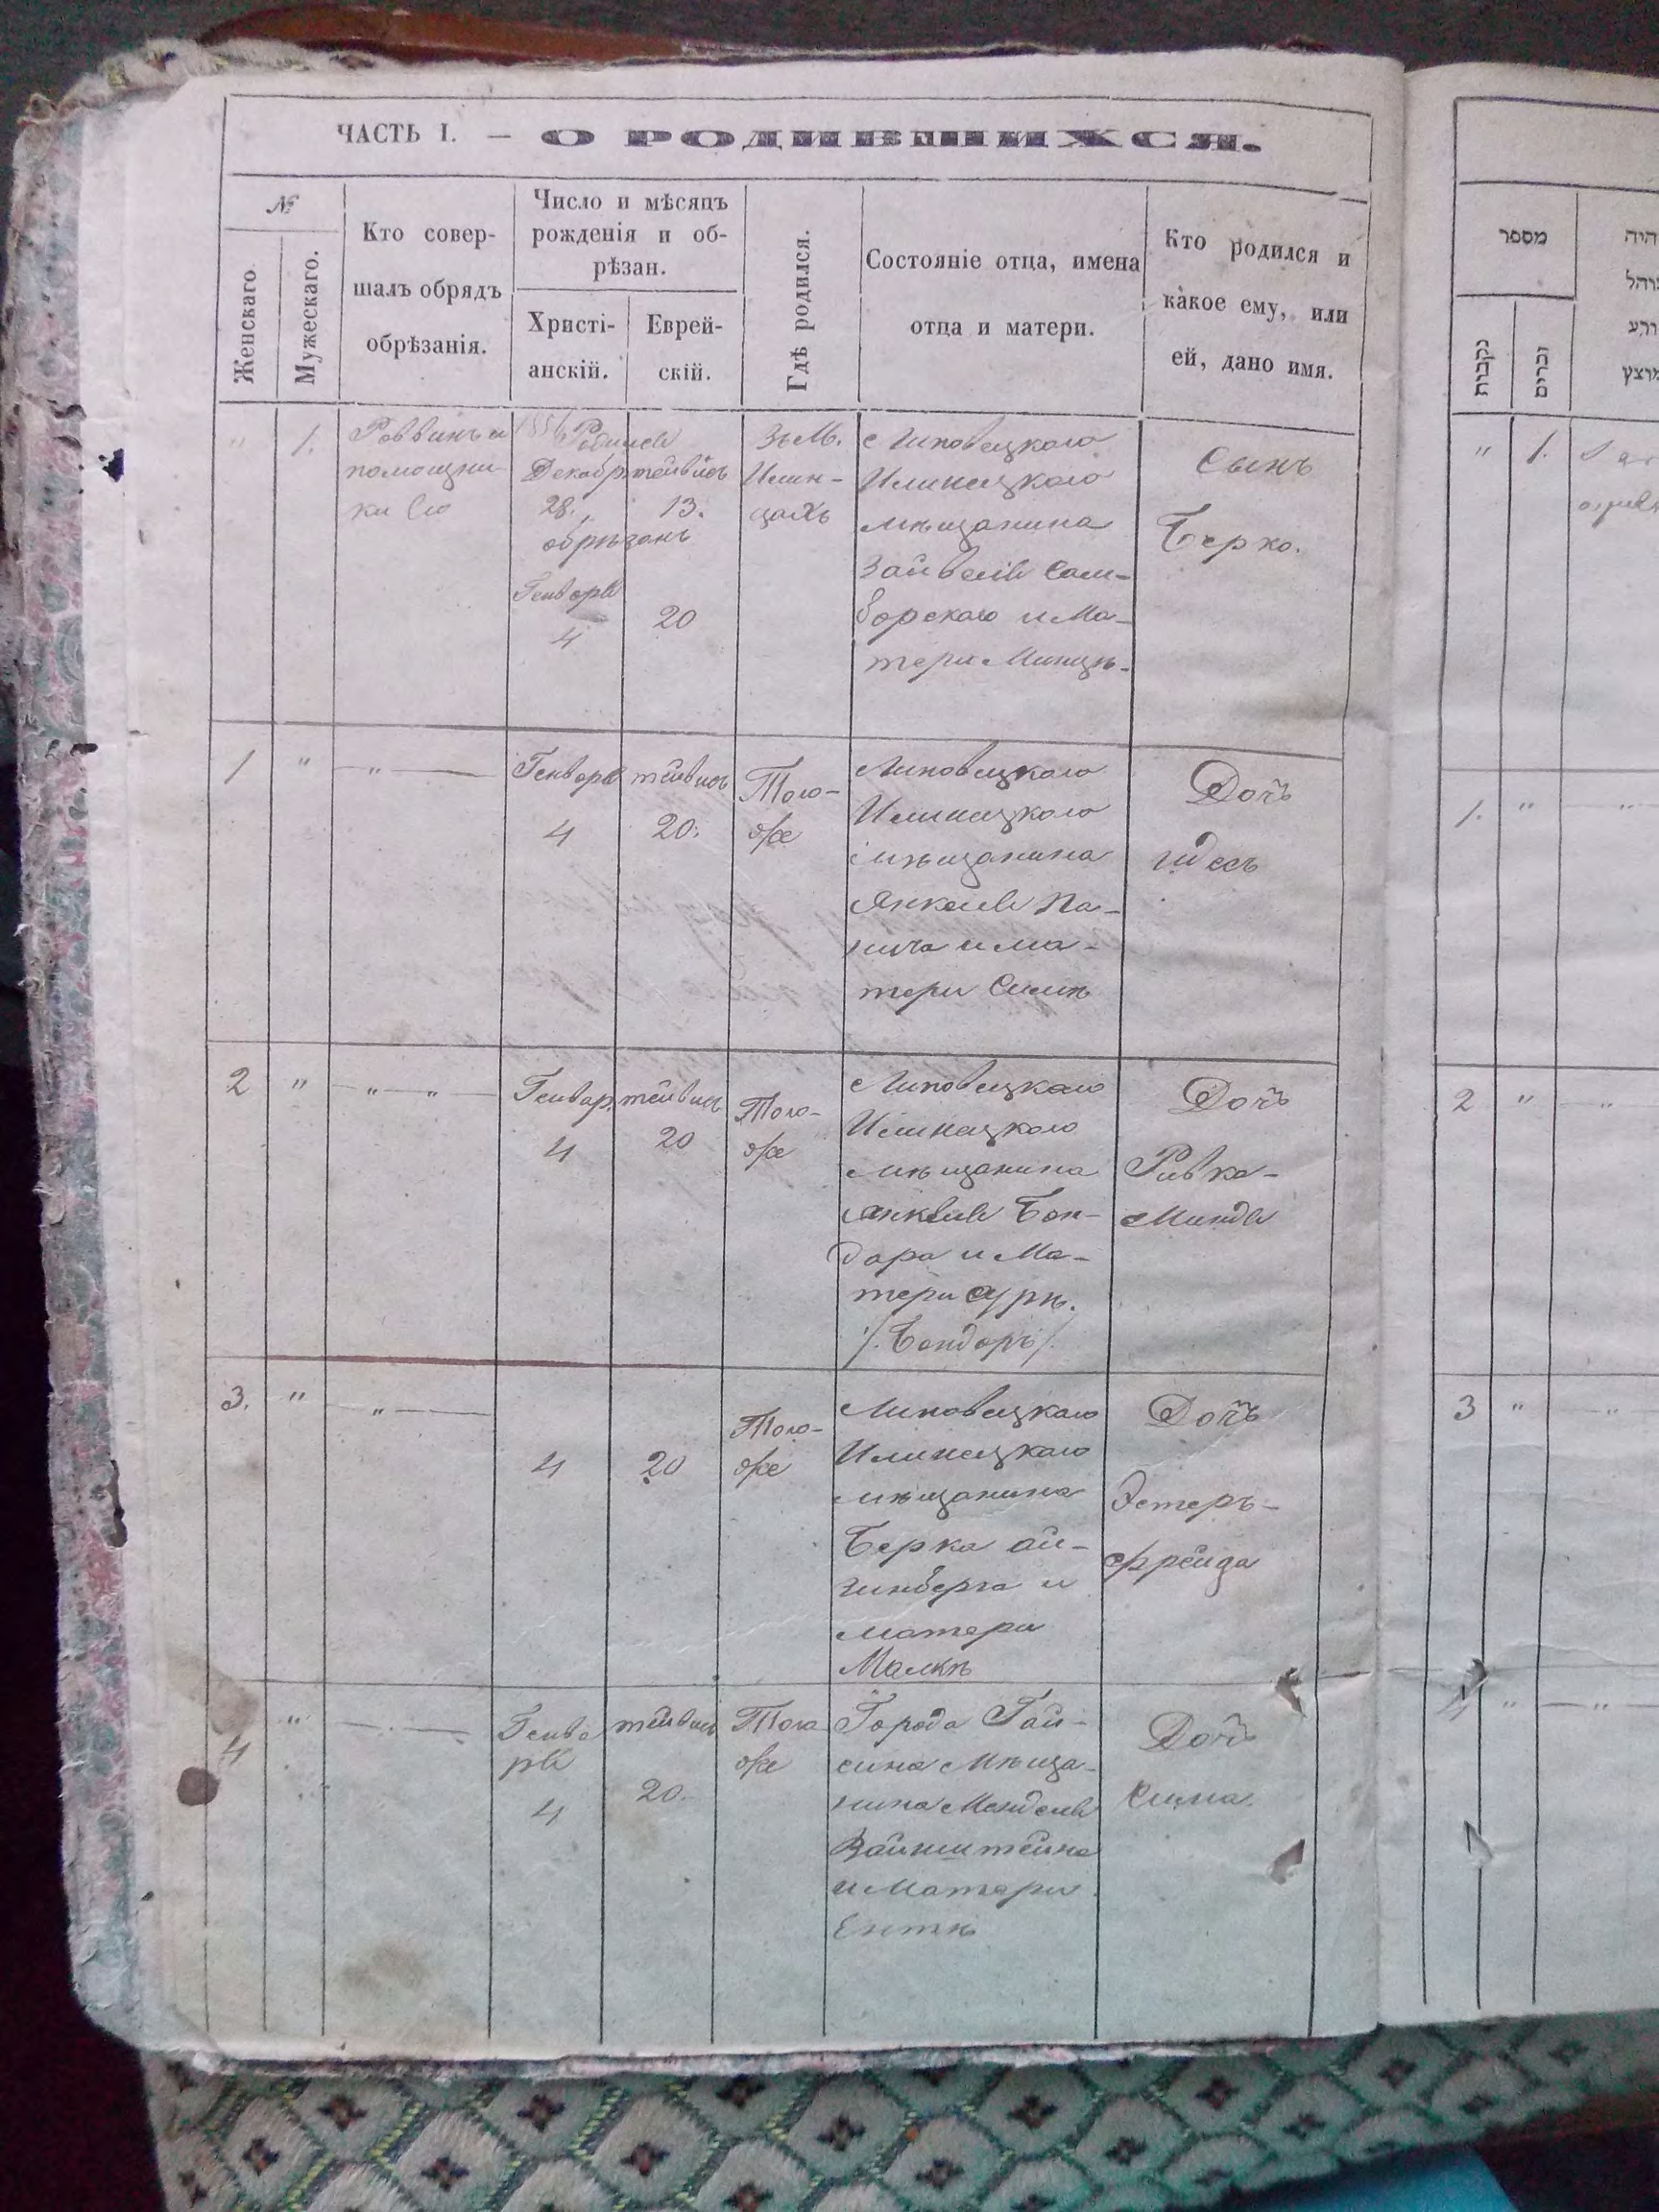 ЧАСТЬ I. — О РОДИВШИХСЯ.
№
Женскаго
Мужескаго.
Кто совер-
шалъ обрядъ
обрѣзанія.
Число и мѣсяцъ
рожденія и об-
рѣзан.
Христі-
анскій.
Еврей-
скій.
Гдѣ родился.
Состояніе отца, имена
отца и матери.
Кто родился и
какое ему, или
ей, дано имя.
" 1.
Раввинъ и
помощни-
ки
Родился
Декабр тейвисъ
28. 13.
обрѣзанъ
Генваря
4 20
Въ М.
Илин-
цахъ
Липовецкаго
Илинецкаго
мѣщанина
Зайвеля Сам-
борскаго и Ма-
тери Минцѣ.
Сынъ
Берко.
1 " — " —
Генваря тейвисъ
4 20.
Того-
же
Липовецкаго
Илинецкаго
мѣщанина
Янкеля Па-
нича и ма-
тери Симѣ
Дочь
2 " — " — " —
Генвар. тейвисъ
4 20
Того-
же
Липовецкаго
Илинецкаго
мѣщанина
Янкеля Бон-
дара и Ма-
тери Сурѣ.
/. Бондаръ /.
Дочь
Ривка-
Миндя
3. " " —
4 20
Того-
же
Липовецкаго
Илинецкаго
мѣщанина
Берка Ай-
зинберга и
матери
Малкѣ
Дочь
Эстеръ-
Фрейда
4 "
Генва
ря
тейвисъ
4 20.
Того
же
Города Гай-
сина Мѣща-
нина Менделя
Вайнштейна
и Матери
Ентѣ
Дочь
Сима.
מספר
נקבות
זכרים
" 1.
1. " — " —
2 "
3 "
4 " — " —